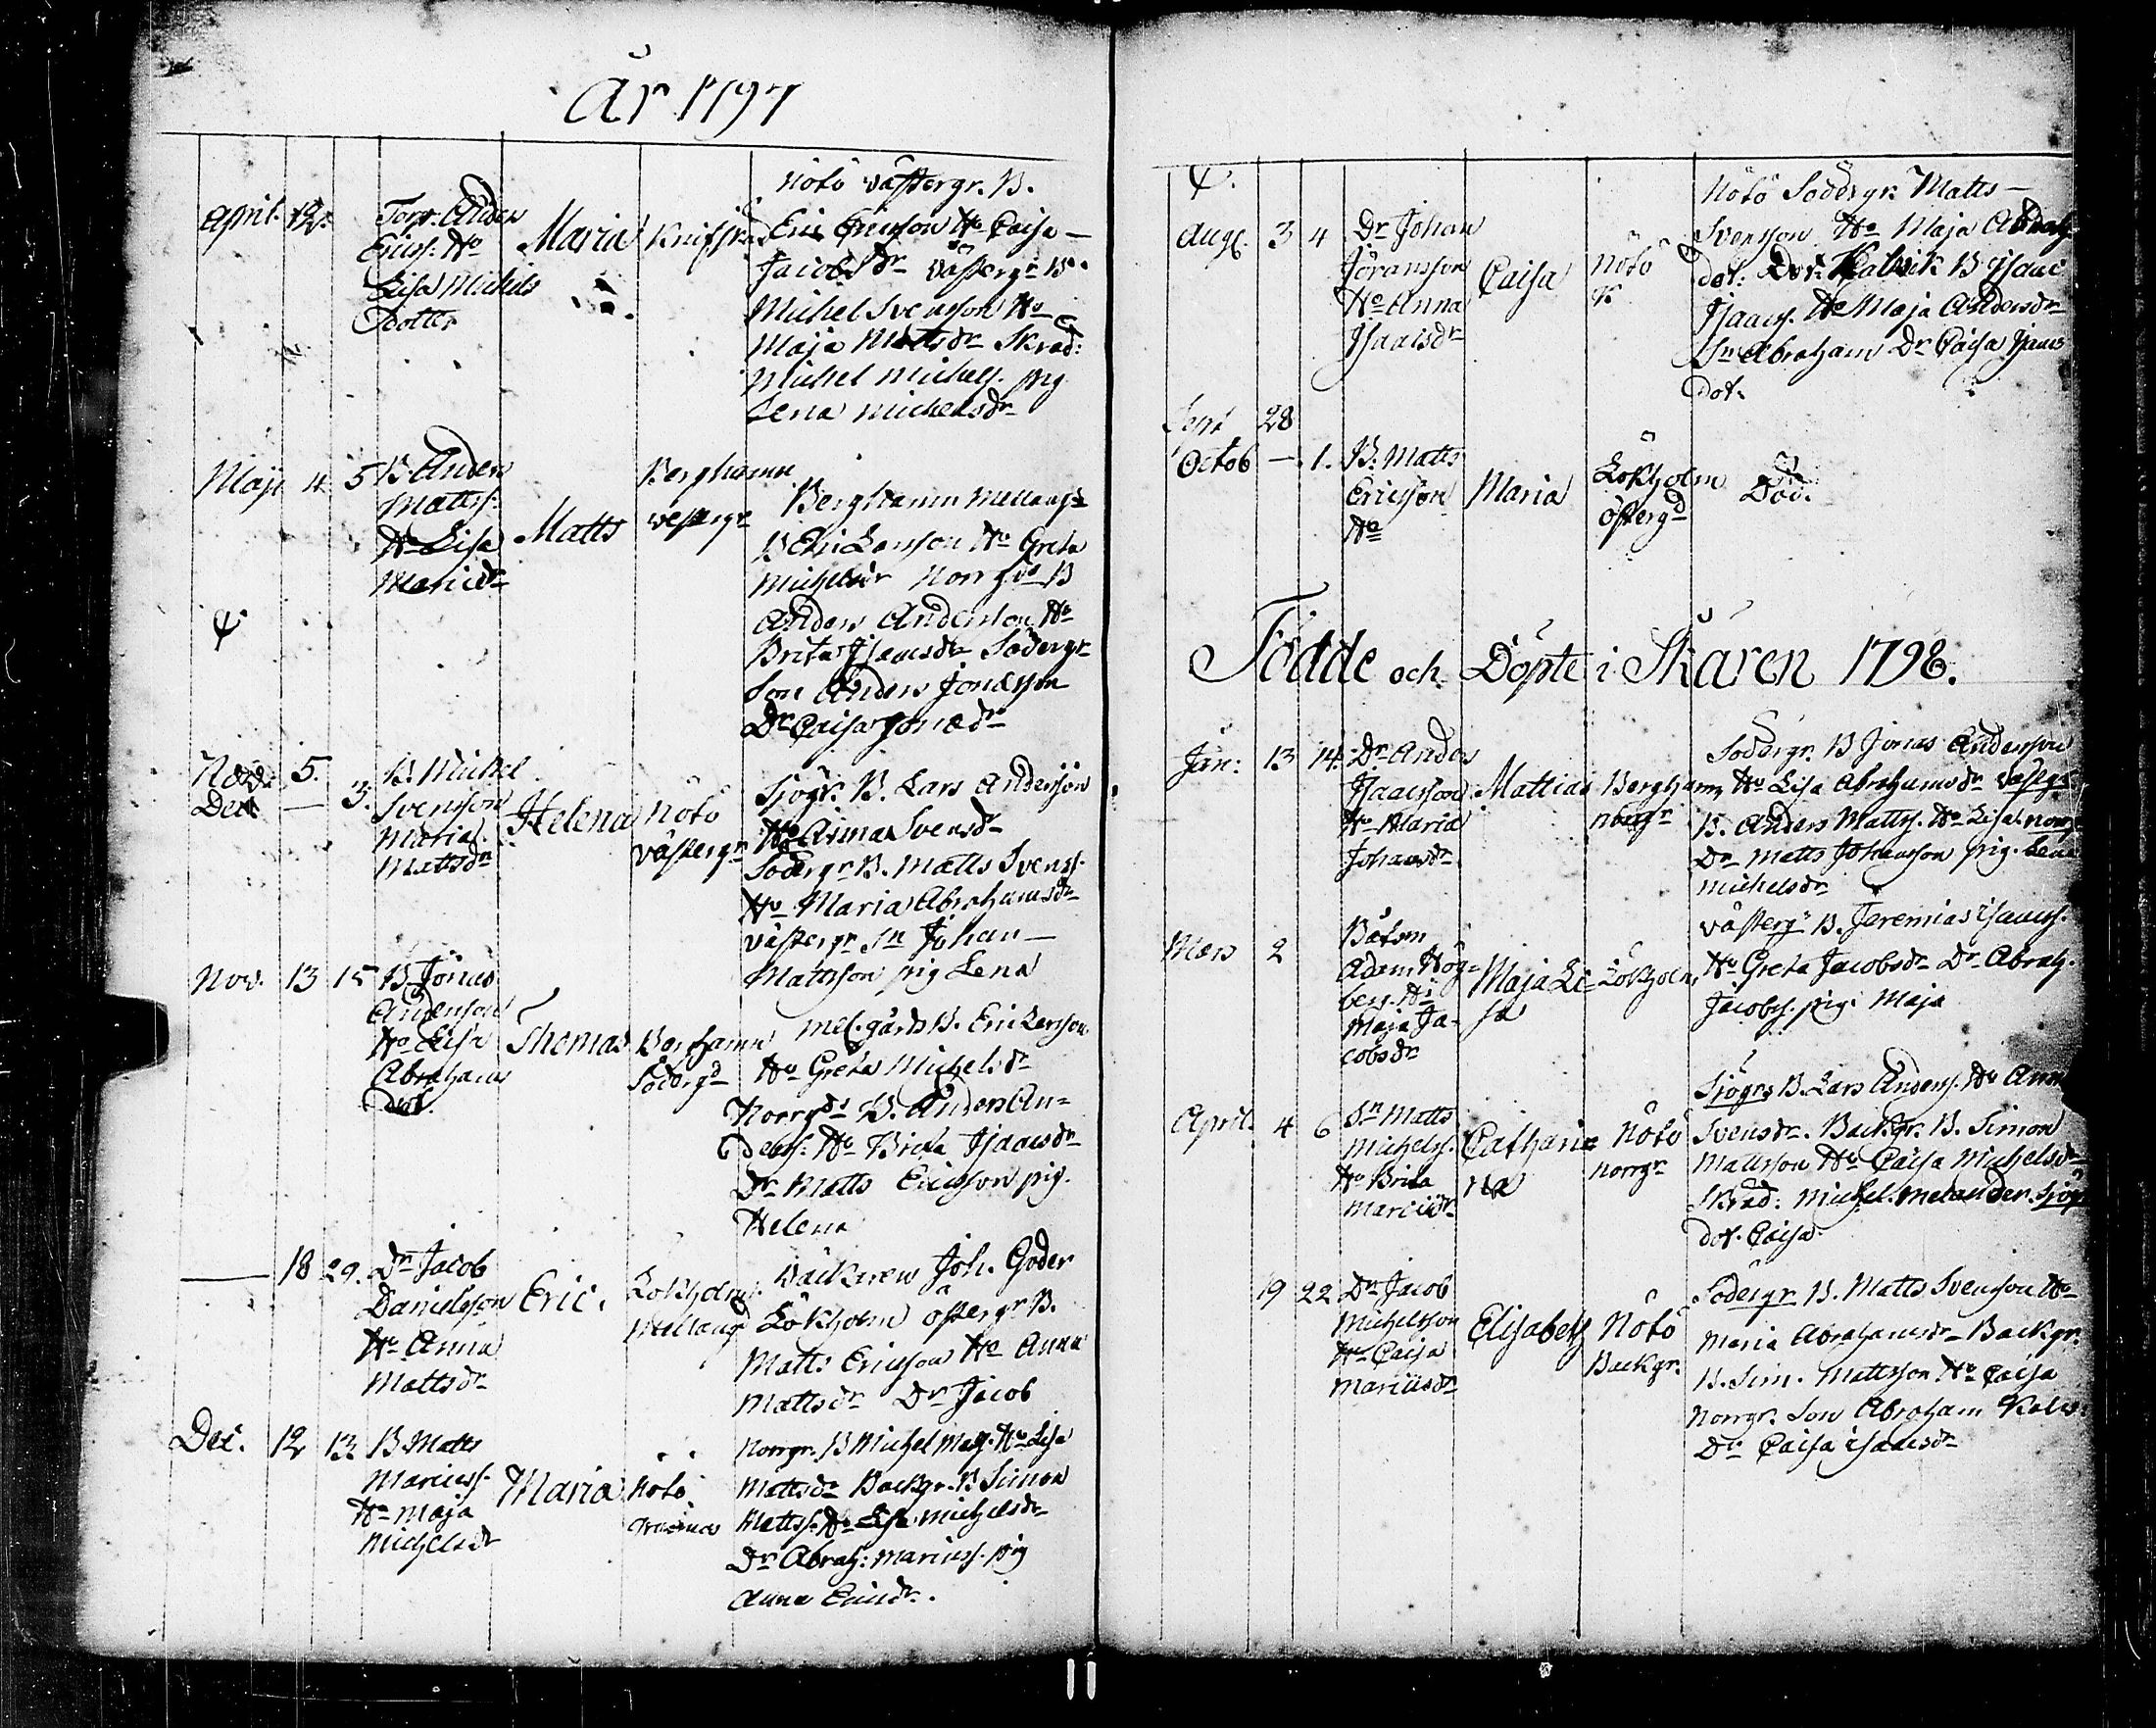 År 1797
April. 12.
Torp. Anders
Ericss. Ho
Lisa Michels
dotter
Maria
Nötö västergr. B.
Eric Ericsson Ho Caisa
Jacobs Dr västergr B.
Michel Svensson Ho
Maja Matts Dr Skräd:
Michel Michelss. pig
Lena Michelsdr
Maji 4 5
B. Anders
Mattss.
Ho Lisa
Matts
Berghamn
westergr
Berghamn mellangr
Ho Greta
Michelsdr Norrgds B
Anders Andersson Ho
Brita Isaacsdr Södergr
Son Anders Jonasson
Dr Caisa Jonædr
Nov. 5.
Dec — 3.
B. Michel
Svensson
Maria
Mattsdr
Helena
Nötö
västergr
Sjögr. B. Lars Andersson
Ho Anna Svensdr
Södergr B. Matts Svenss.
Ho Maria Abrahamsdr
västergr Sn Johan —
Mattsson pig Lena
Nov. 13 15
B. Jonas
Andersson
Ho Lisa
Abrahams
dot.
Thomas
Berghamn
Södergd
mel.gårds B. Eric Larsson
Ho Greta Michelsdr
Norrgds B. Anders An=
derss. Ho Brita Isaacsdr
Dr Matts Ericsson pig.
Helena
— 18 29.
Dr Jacob
Danielsson
Ho Anna
Mattsdr
Eric.
Lökholm
Mellangd
Joh. Goder
Lökholm östergr B.
Matts Ericsson Ho Anna
Mattsdr Dr Jacob
Dec. 12 13
B Matts
Mariuss.
Ho Maja
Michelsdr
Maria
Nötö
Norrgr. B Michel Matss. Ho Lisa
Mattsdr Backgr. B Simon
Mattss. Ho Lisa Michelsdr
Dr Abrah: Mariuss. pig
Anna Ericsdr.
Aug. 3 4
Dr Johan
Jöransson
Ho Anna
Isaacsdr
Caisa
Nötö
K
Nötö Södergr. Matts —
Svensson Ho Maja Abrah
dot: B Isaac
Isaacss. Ho Maja Andersdr
Sn Abraham Dr Caisa Isaacs
dot.
Sept 28
Octob — 1.
B. Matts
Ericsson
Ho
Maria
Lökholm
östergd
Död.
Födde och Döpte i Skären 1798.
Jan: 13 14
Dr Anders
Isaacsson
Ho Maria
Johansdr
Mattias
Berghamn
norrgr
Södergr. B Jonas Andersson
Ho Lisa Abrahamsdr västgr
B. Anders Mattss. Ho Lisa norrg
Dr Matts Johansson pig. Lena
Michelsdr
Mars 2
Båtsm
Adam Hög=
berg. Ho
Maja Ja=
cobsdr
Maja Li=
sa
Lökholm
västerg B. Jeremias Isaacss.
Ho Greta Jacobsdr Dr Abrah.
Jacobss. pig. Maja
April. 4 6
Sn Matts
Michelss.
Ho Brita
Mariusdr
Cathari=
na
Nötö
norrgr
Sjögrs B. Lars Anderss. Ho Anna
Svensdr. Backgr. B. Simon
Mattsson Ho Caisa Michelsdr
Skräd: Michel Melander Sjög
dot. Caisa
19 22
Dr Jacob
Michelsson
Ho Caisa
Mariusdr
Elisabeth
Nötö
Backgr.
Södergr. B. Matts Svensson Ho
Maria Abrahamsdr Backgr.
B. Sim. Mattsson Ho Caisa
Norrgr. Son Abraham
Dr Caisa Isaacsdr